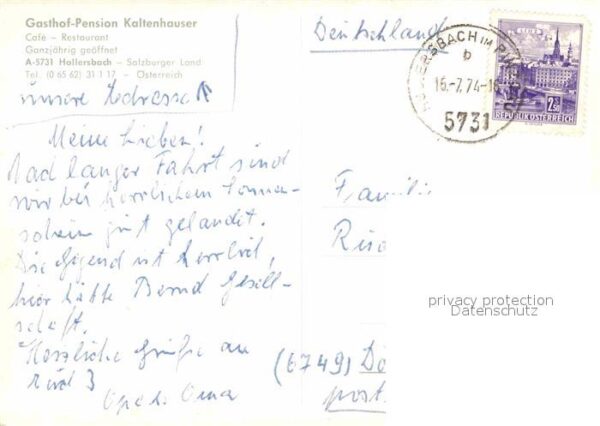 Gasthof-Pension Kaltenhauser
Café – Restaurant
Ganzjährig geöffnet
A-5731 Hollersbach – Salzburger Land
Tel. (0 65 62) 31 1 17 – Österreich
unsere Adresse ↑
Meine Lieben!
Nach langer Fahrt sind
wir bei herrlichem Sonnen-
schein gut gelandet.
Die Gegend ist herrlich,
hier hätte Bernd Gesell-
schaft.
Herzliche Grüße an
Opa u. Oma
Deutschland
HOLLERSBACH IM
b
16.-7.74-16
5731
WIEN
2.50
REPUBLIK ÖSTERREICH
Famili
(6749)
post
privacy protection
Datenschutz